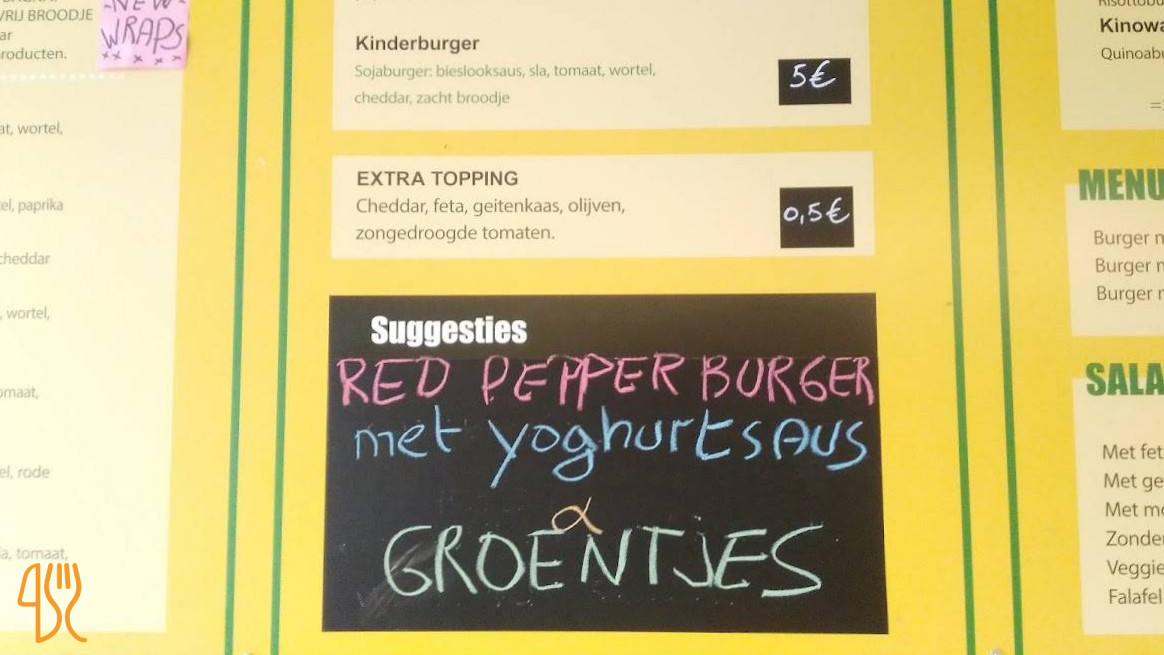 NEW
VRIJ BROODJE
WRAPS
roducten.
at, wortel,
el, paprika
cheddar
, wortel,
omaat,
el, rode
la, tomaat,
Kinderburger
Sojaburger: bieslooksaus, sla, tomaat, wortel,
cheddar, zacht broodje
5€
EXTRA TOPPING
Cheddar, feta, geitenkaas, olijven,
zongedroogde tomaten.
0,5€
Suggesties
RED PEPPER BURGER
met yoghurtsAUS
&
GROENTJES
Kinowa
Quinoabu
MENU
Burger m
Burger m
Burger m
SALA
Met fet
Met ge
Met mo
Zonder
Veggie
Falafel